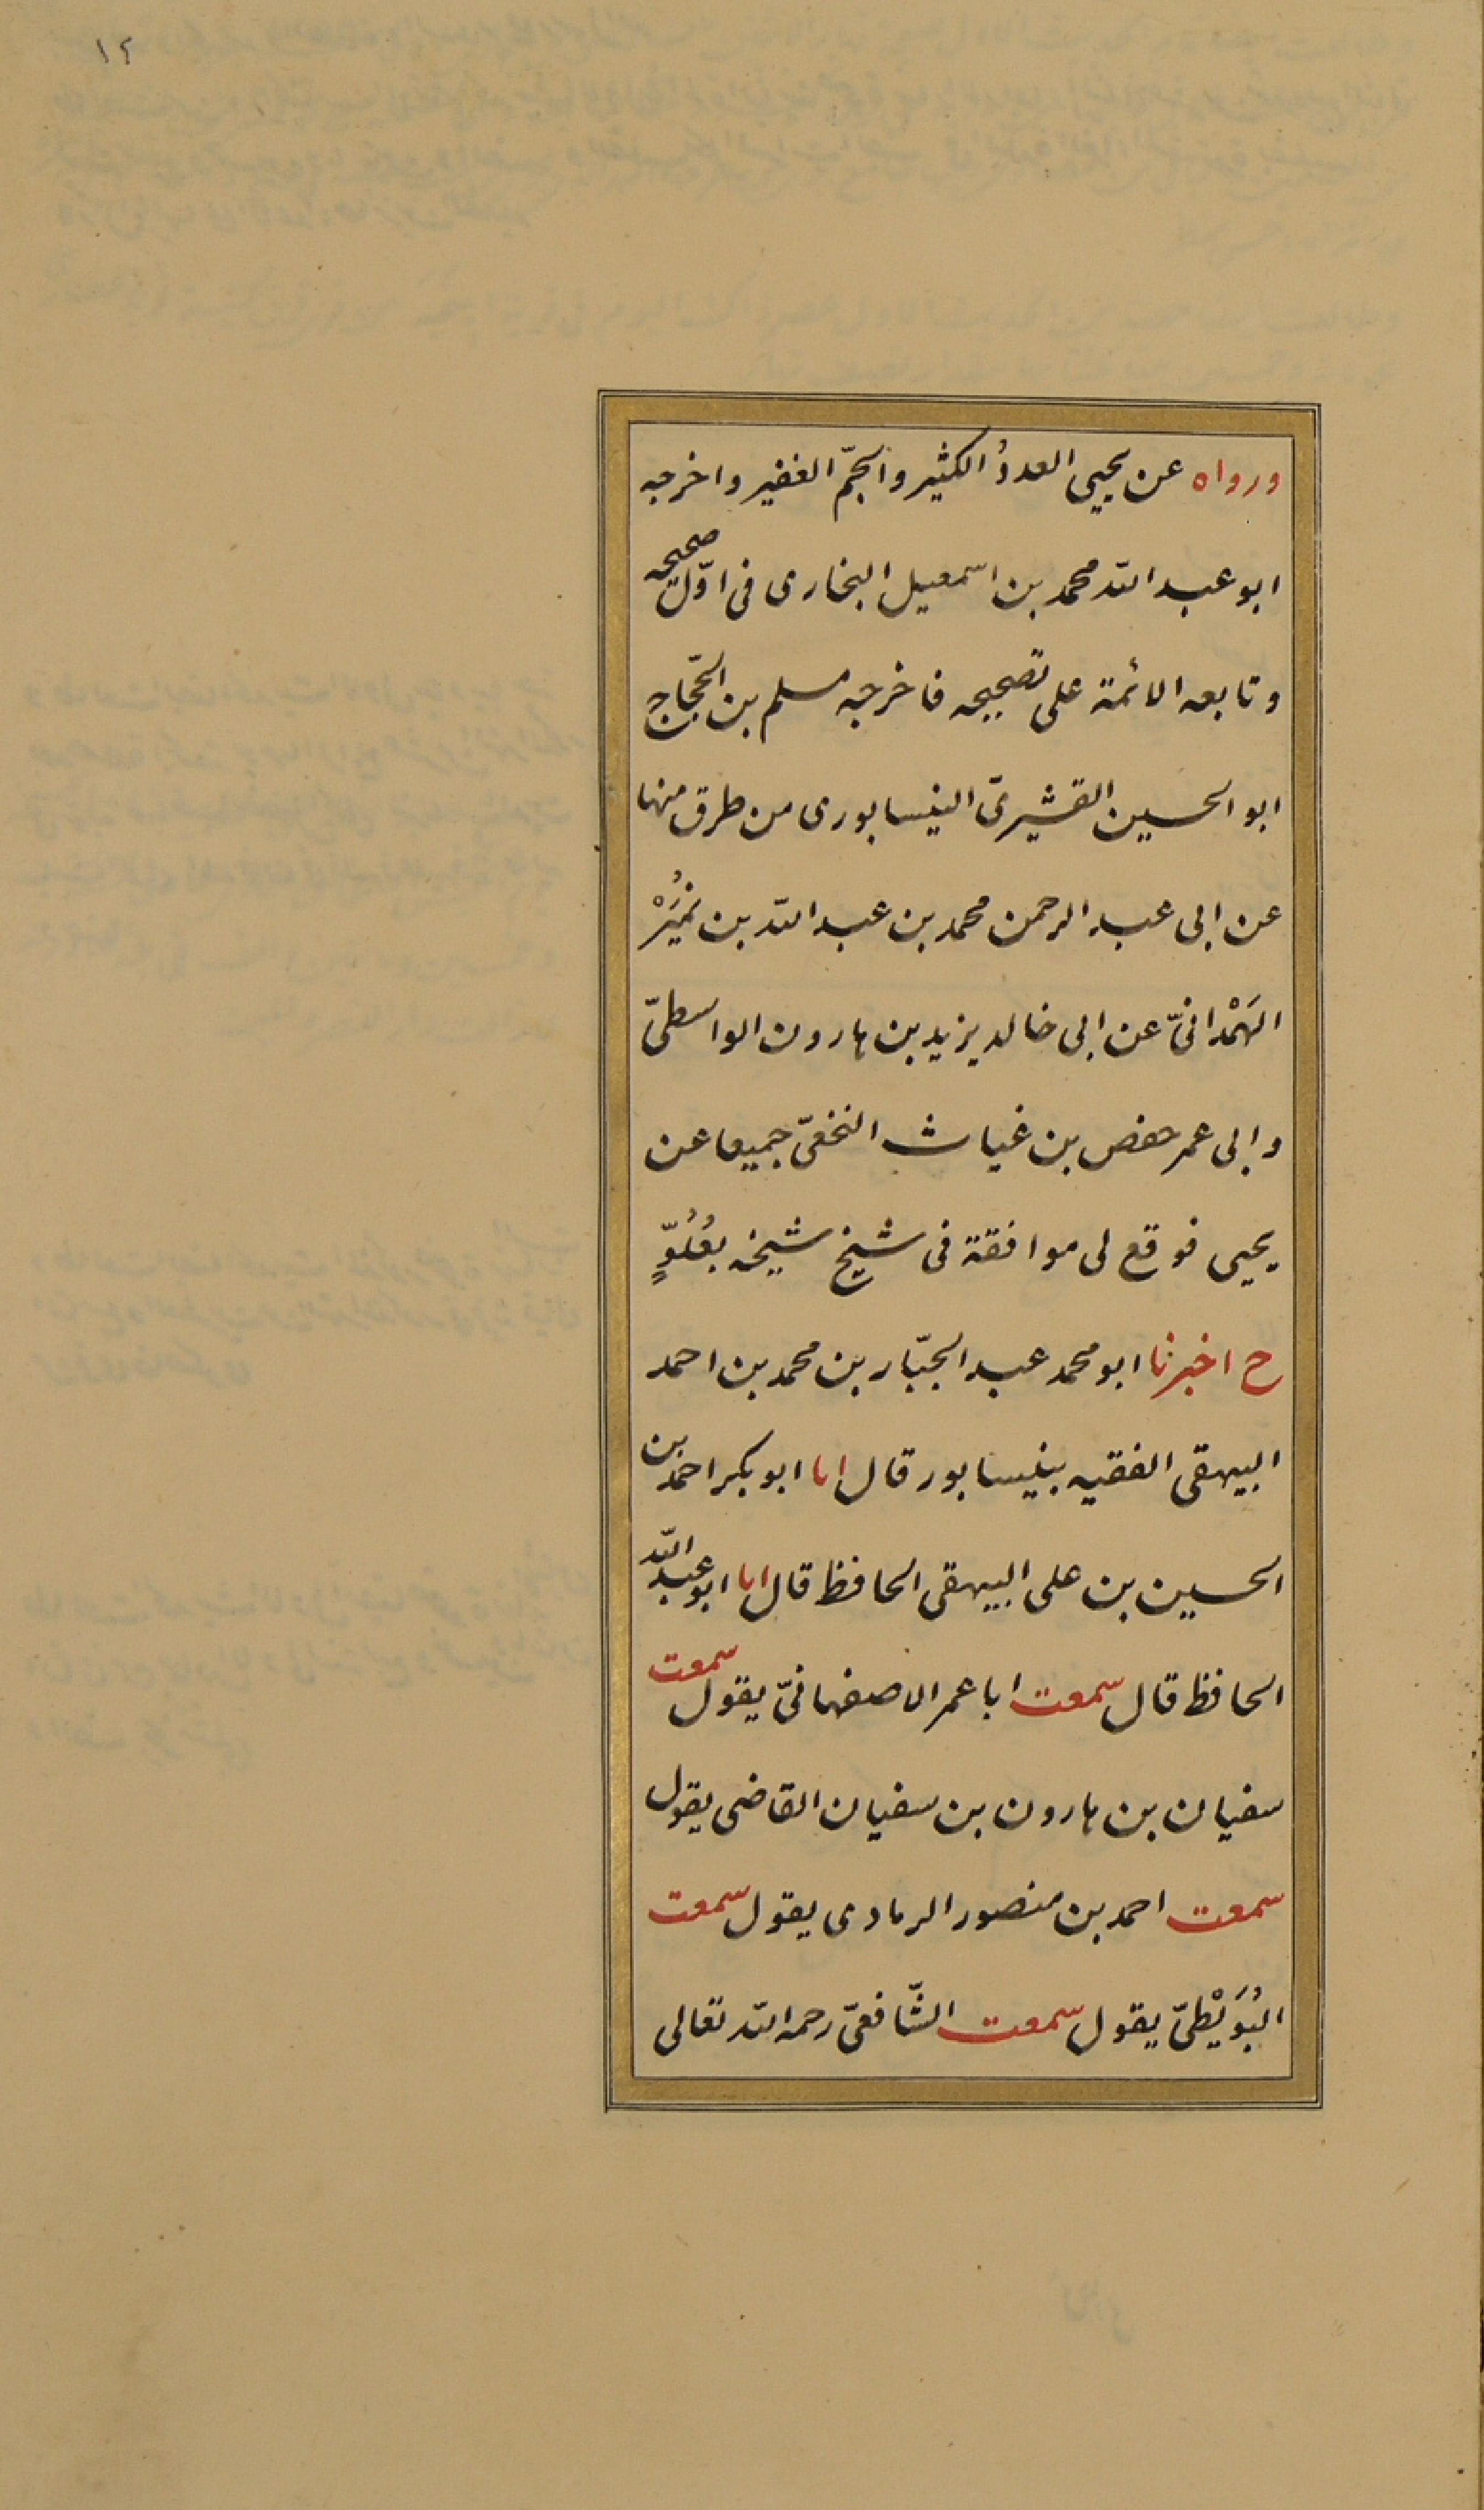 ١٢
ورواه عن يحيى العددُ الكثير والجمّ الغفير واخرجه
ابو عبد الله محمد بن اسمعيل البخارى فى اوّل صحيحه
وتابعه الائمة على تصحيحه فاخرجه مسلم بن الحجّاج
ابو الحسين القشيرىّ النيسابورى من طرق منها
عن ابى عبد الرحمن محمد بن عبد الله بن نُمَيْر
الهَمْدانىّ عن ابى خالد يزيد بن هارون الواسطىّ
وابى عمر حفص بن غياث النخعىّ جميعا عن
يحيى فوقع لى موافقة فى شيخ شيخه بعُلُوٍّ
ح اخبرنا ابو محمد عبد الجبّار بن محمد بن احمد
البيهقى الفقيه بنيسابور قال انا ابو بكر احمد بن
الحسين بن على البيهقى الحافظ قال انا ابو عبد الله
الحافظ قال سمعت ابا عمر الاصفهانىّ يقول سمعت
سفيان بن هارون بن سفيان القاضى يقول
سمعت احمد بن منصور الرمادى يقول سمعت
البُوَيْطىّ يقول سمعت الشّافعىّ رحمه الله تعالى